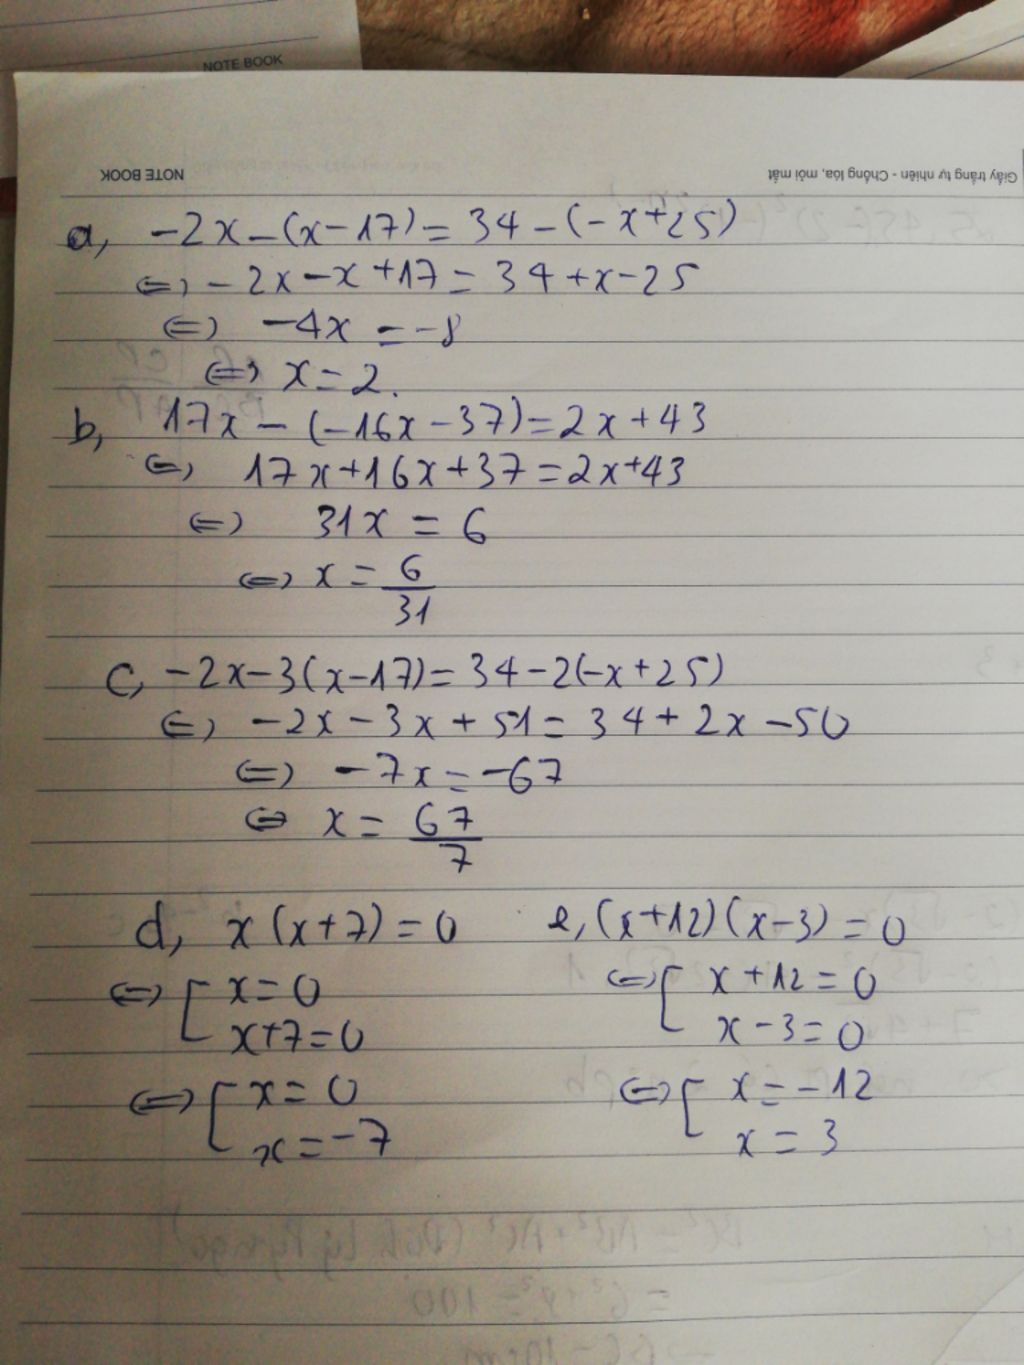 NOTE BOOK
NOTE BOOK
Giấy trắng tự nhiên - Chống lóa, mỏi mắt
a, -2x-(x-17)=34-(-x+25)
⇔ -2x-x+17=34+x-25
⇔ -4x=-8
⇔ x=2.
b, 17x-(-16x-37)=2x+43
⇔ 17x+16x+37=2x+43
⇔ 31x=6
⇔ x=6/31
c, -2x-3(x-17)=34-2(-x+25)
⇔ -2x-3x+51=34+2x-50
⇔ -7x=-67
⇔ x=67/7
d, x(x+7)=0
⇔ [ x=0
x+7=0
⇔ [ x=0
x=-7
e, (x+12)(x-3)=0
⇔ [ x+12=0
x-3=0
⇔ [ x=-12
x=3